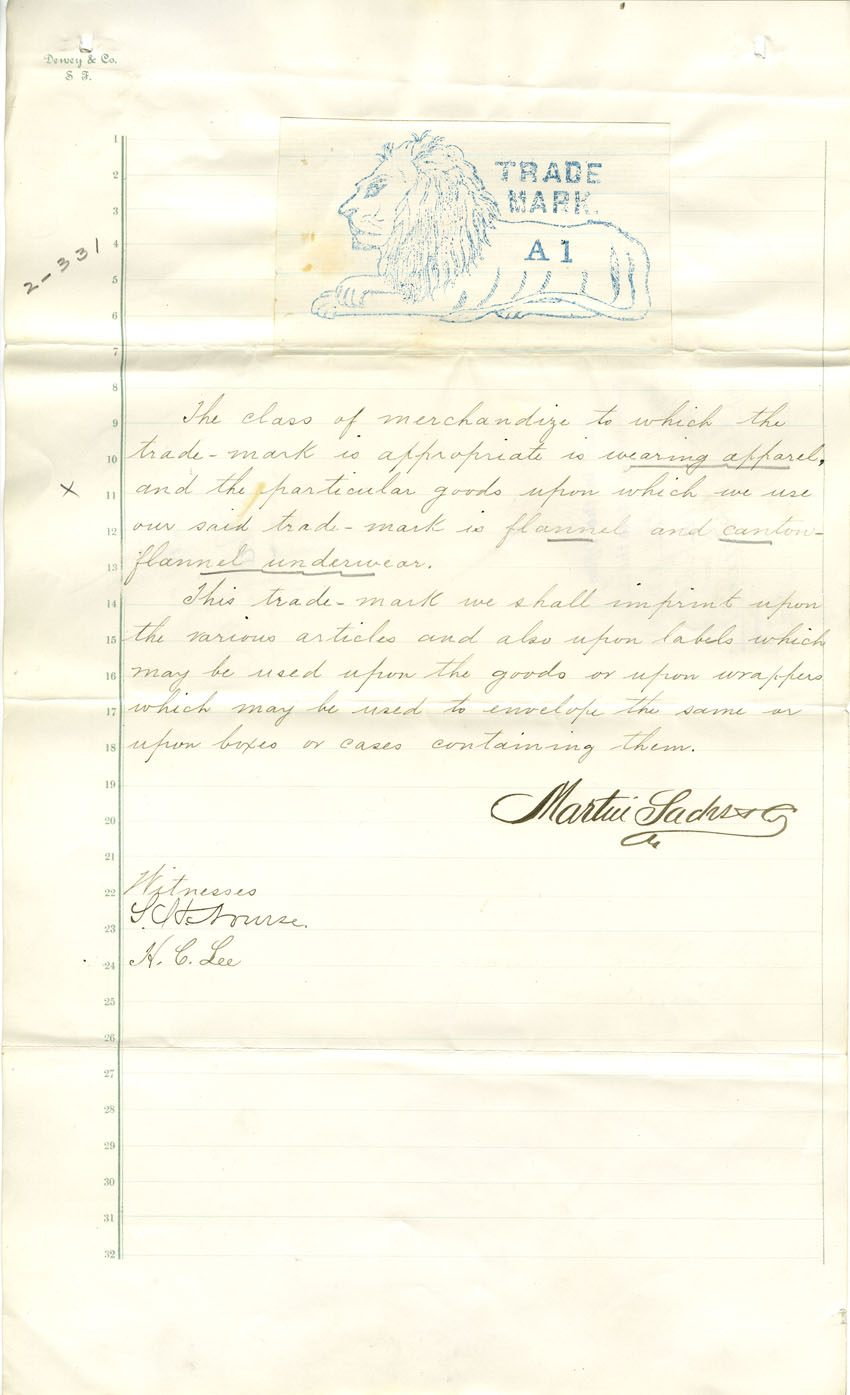 Dewey & Co.
S F.
TRADE
MARK.
A 1
2-331
1
2
3
4
5
6
7
8
9 The class of merchandize to which the
10 trade-mark is appropriate is wearing apparel,
x 11 and the particular goods upon which we use
12 our said trade-mark is flannel and canton-
13 flannel underwear.
14 This trade-mark we shall imprint upon
15 the various articles and also upon labels which
16 may be used upon the goods or upon wrappers
17 which may be used to envelope the same or
18 upon boxes or cases containing them.
19
20 Martin Sachs & Co
21
22 Witnesses
23 Nourse.
24 H. C. Lee
25
26
27
28
29
30
31
32